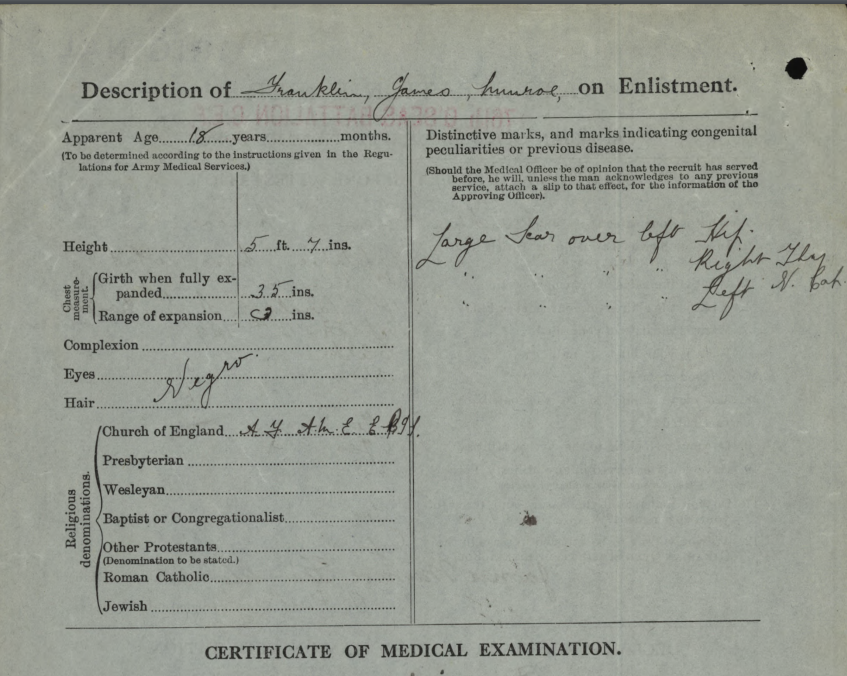 Description of Franklin, James, Munroe, on Enlistment.
Apparent Age 18 years months.
(To be determined according to the instructions given in the Regu-
lations for Army Medical Services.)
Height 5 ft. 7 ins.
Chest measure-
ment.
Girth when fully ex-
panded 35 ins.
Range of expansion ins.
Complexion
Eyes
Negro.
Hair
Religious
denominations.
Church of England
Presbyterian
Wesleyan
Baptist or Congregationalist
Other Protestants
(Denomination to be stated.)
Roman Catholic
Jewish
Distinctive marks, and marks indicating congenital
peculiarities or previous disease.
(Should the Medical Officer be of opinion that the recruit has served
before, he will, unless the man acknowledges to any previous
service, attach a slip to that effect, for the information of the
Approving Officer).
Large Scar over left Hip.
" " " " Right
" " " " Left
CERTIFICATE OF MEDICAL EXAMINATION.